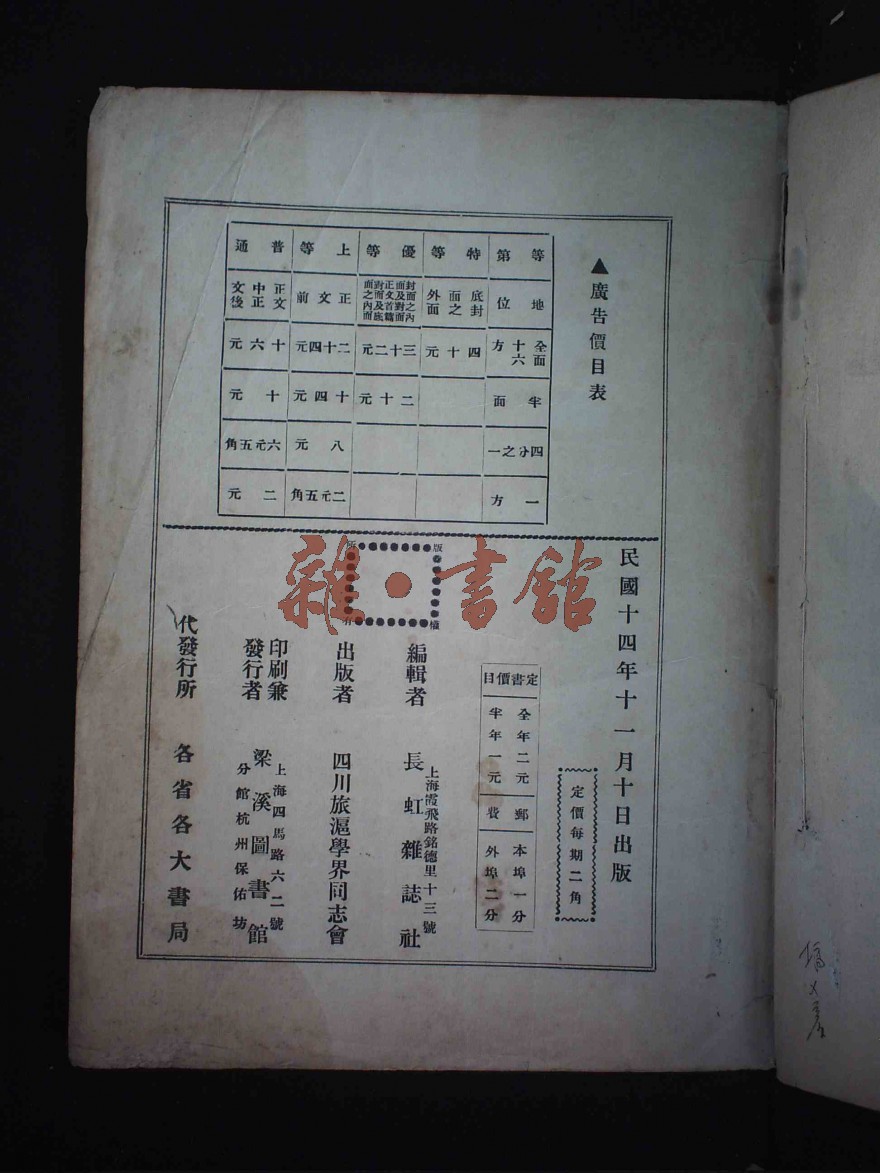 ▲廣告價目表
等第 特等 優等 上等 普通
地位 底封面之外面 封面之內面及對面正文首篇對面及底面之內面 正文前 正文中正文後
全面十六方 四十元 三十二元 二十四元 十六元
半面 二十元 十四元 十元
四分之一 八元 六元五角
一方 二元五角 二元
民國十四年十一月十日出版
定價每期二角
定書價目
全年二元
半年一元
郵費
本埠一分
外埠二分
版權所有
編輯者 長虹雜誌社
上海霞飛路銘德里十三號
出版者 四川旅滬學界同志會
印刷兼發行者 梁溪圖書館
上海四馬路六二號
分館杭州保佑坊
代發行所 各省各大書局
雜·書館